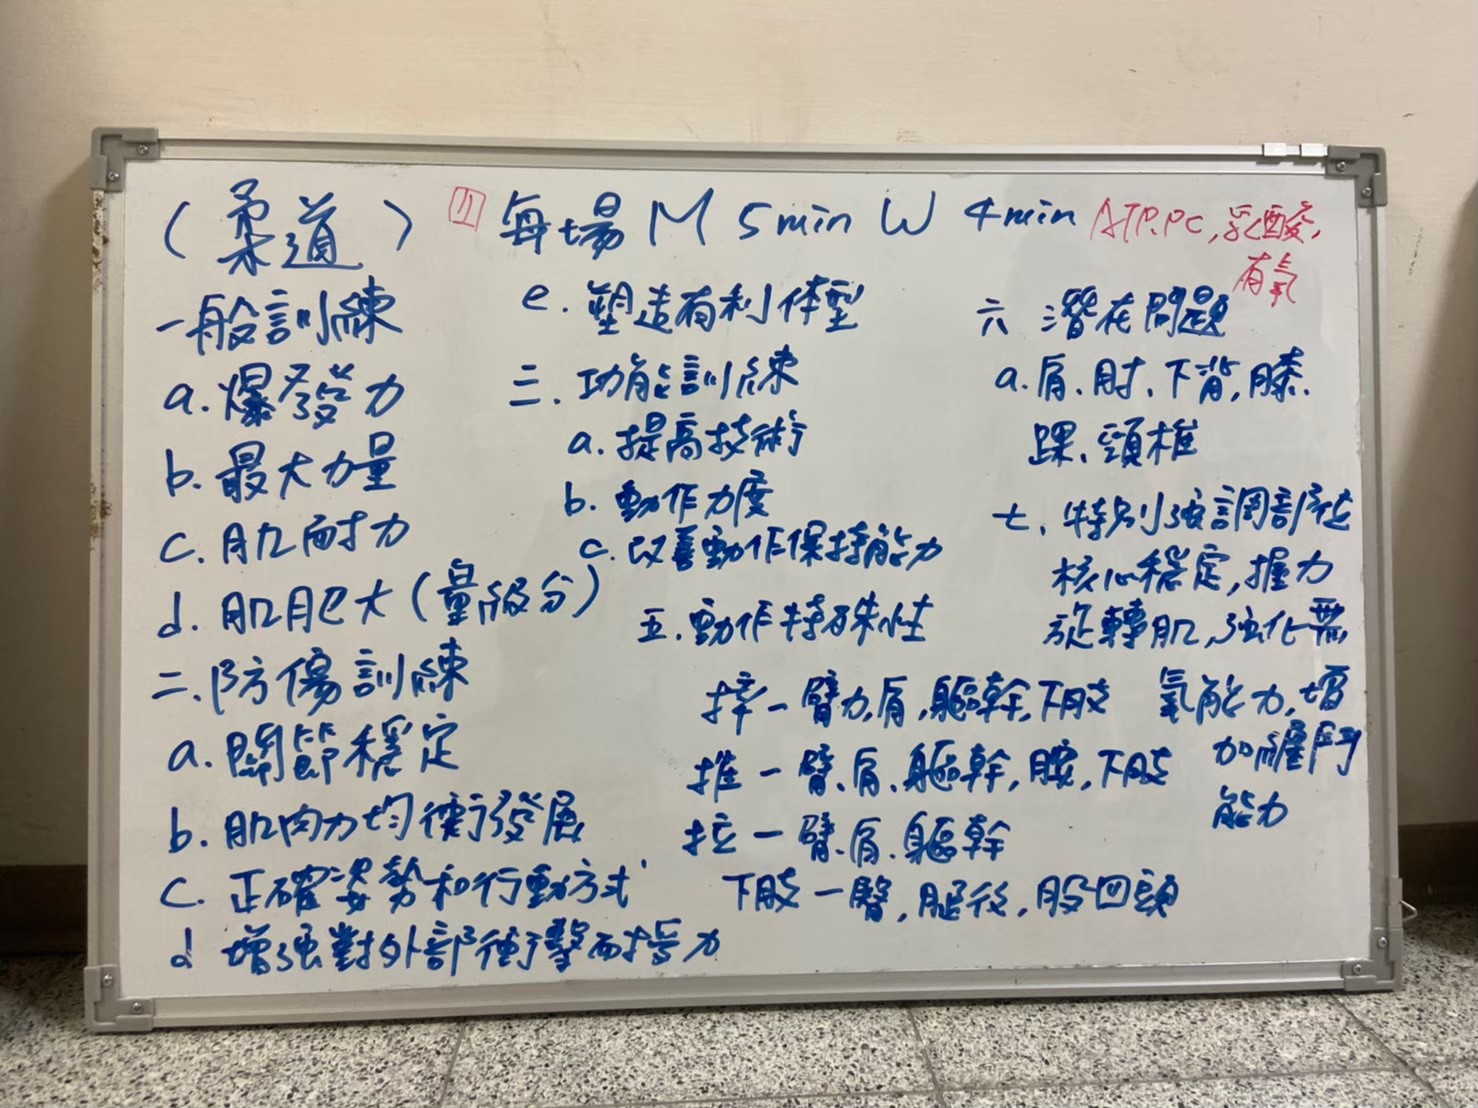 (柔道)
四 每場 M 5min W 4min ATP.PC,乳酸,
有氧
一般訓練
a. 爆發力
b. 最大力量
c. 肌耐力
d. 肌肥大(量級分)
二. 防傷訓練
a. 關節穩定
b. 肌肉力均衡發展
c. 正確姿勢和行動方式
d 增強對外部衝擊耐受力
e. 塑造有利体型
三. 功能訓練
a. 提高技術
b. 動作力度
c. 改善動作保持能力
五. 動作特殊性
摔一臂力,肩,軀幹,下肢
推一臂.肩.軀幹,腰,下肢
拉一臂.肩.軀幹
下肢一臀,腿後,股四頭
六 潛在問題
a. 肩.肘.下背,膝.
踝.頸椎
七. 特別強調部位
核心穩定,握力
旋轉肌,強化無
氧能力,增
加纏鬥
能力